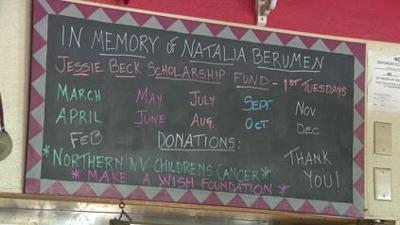 IN MEMORY OF NATALIA BERUMEN
JESSIE BECK SCHOLARSHIP FUND - 1ST TUESDAYS
MARCH MAY JULY SEPT. NOV.
APRIL JUNE AUG. OCT. DEC
FEB DONATIONS:
*NORTHERN NV CHILDRENS CANCER*
* MAKE A WISH FOUNDATION *
THANK
YOU!